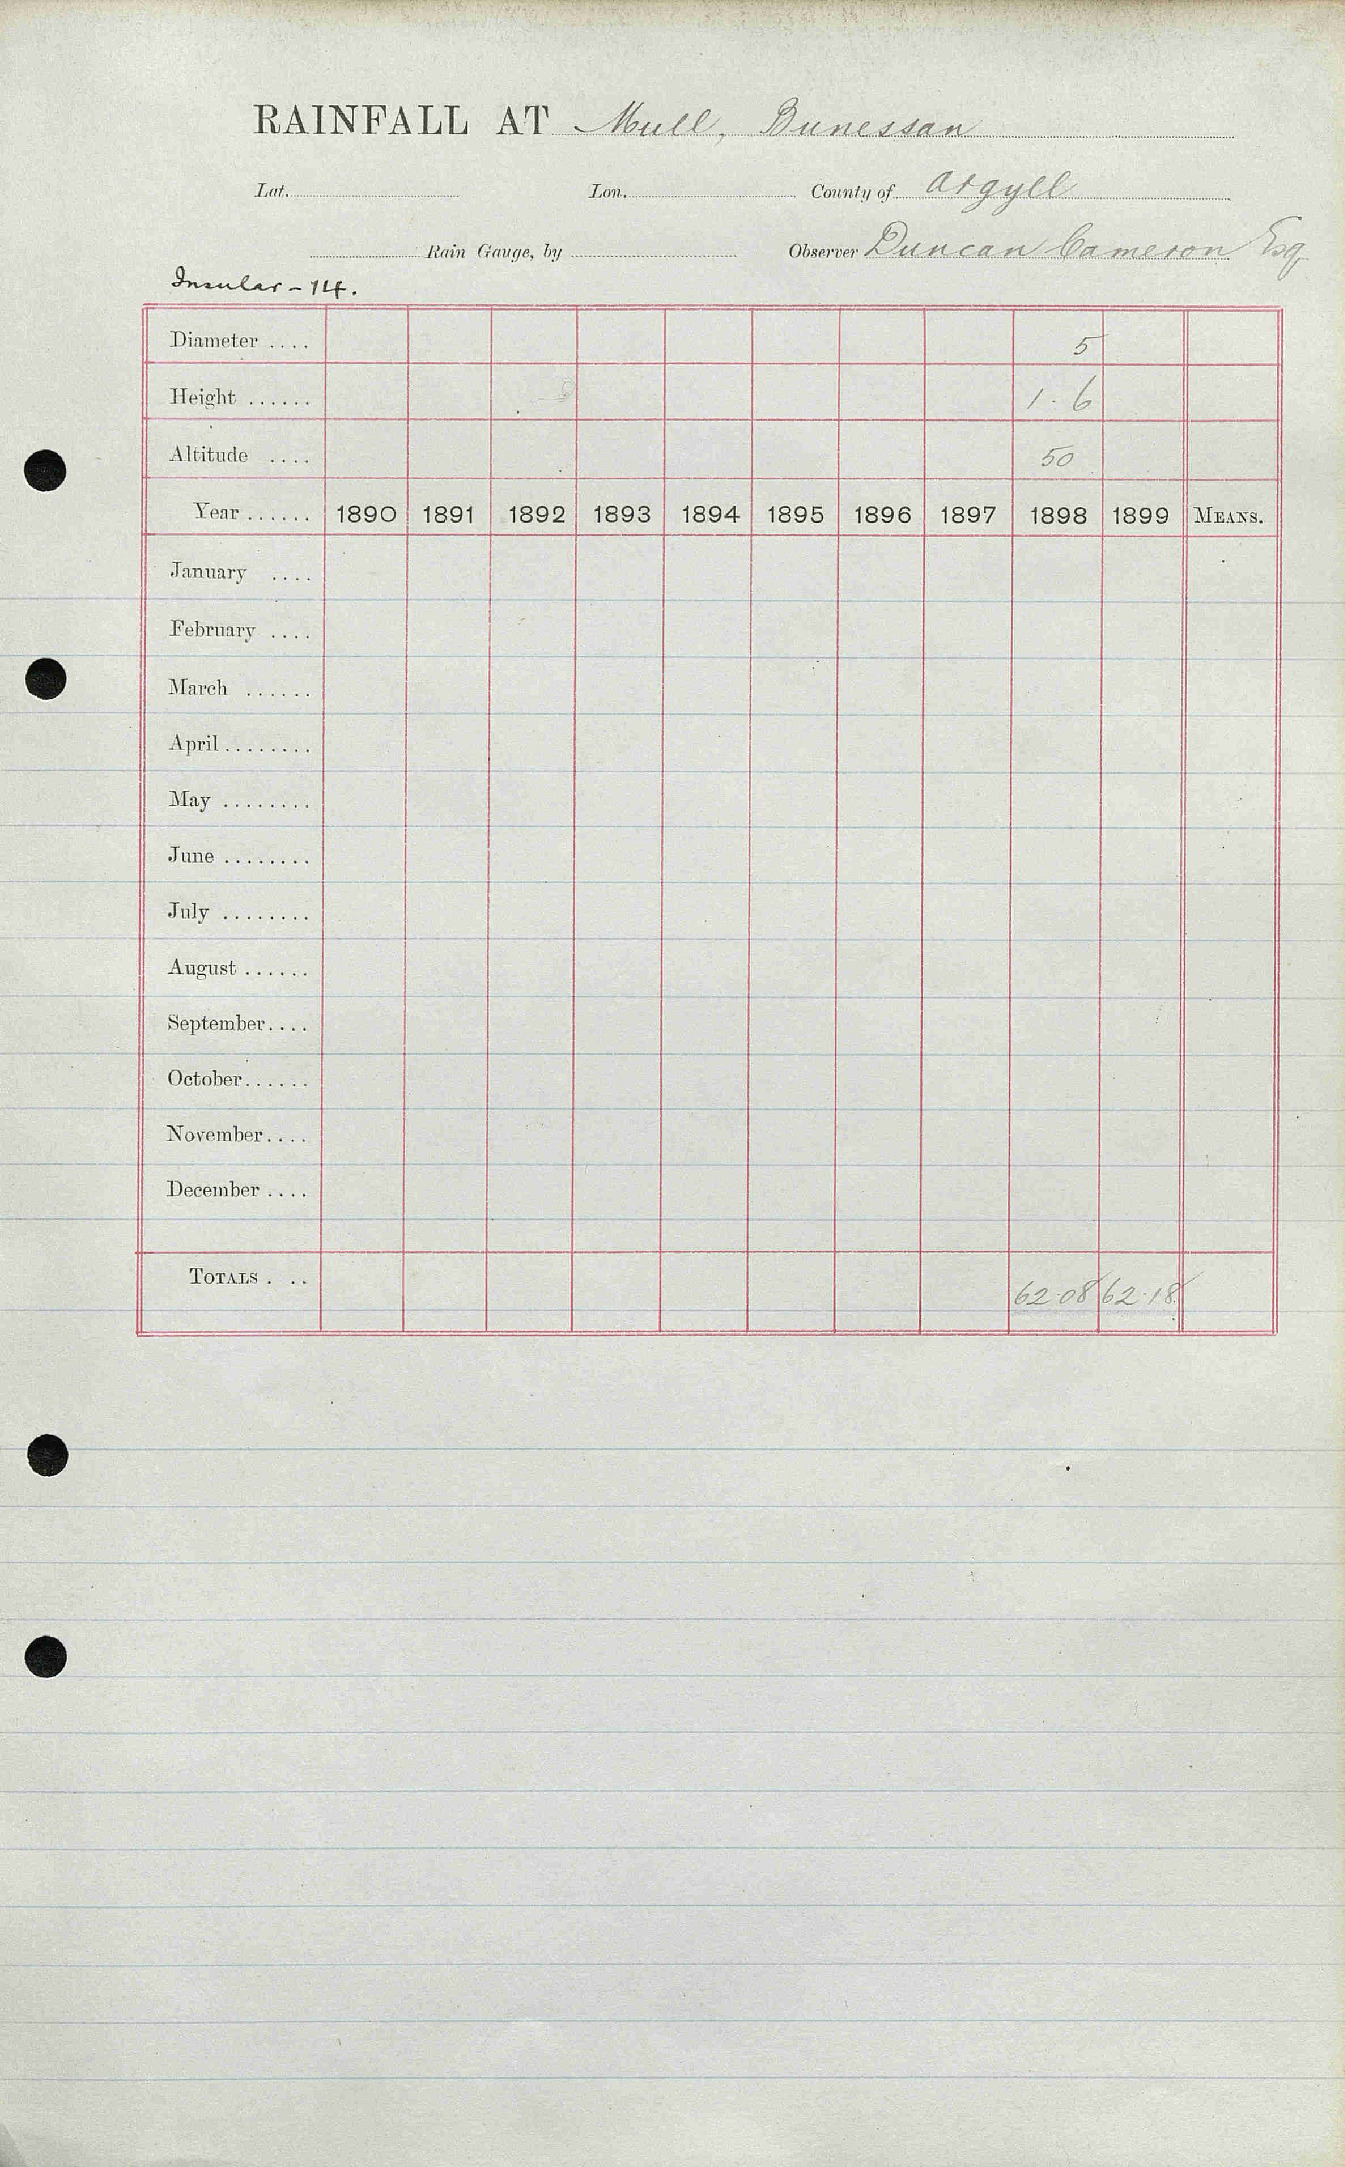 RAINFALL AT Mull, Bunessan
Lat. Lon. County of Argyll
Rain Gauge, by Observer Duncan Cameron Esq
Insular - 14.
Diameter .... 5
Height ...... 1. 6
Altitude .... 50
Year ...... 1890 1891 1892 1893 1894 1895 1896 1897 1898 1899 MEANS.
January ....
February ....
March ......
April ........
May ........
June ........
July ........
August ......
September....
October......
November....
December ....
TOTALS . .. 62.08 62.18